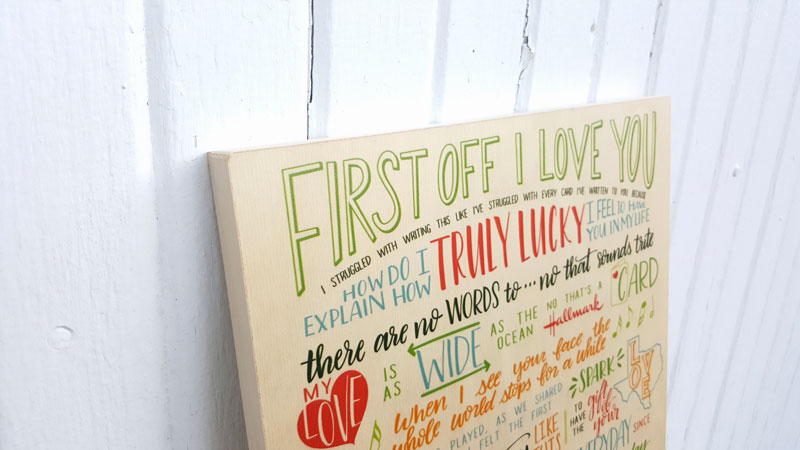 FIRST OFF I LOVE YOU
I STRUGGLED WITH WRITING THIS LIKE I'VE STRUGGLED WITH EVERY CARD I'VE WRITTEN TO YOU BECAUSE
HOW DO I
EXPLAIN HOW
TRULY LUCKY
I FEEL TO HAVE
YOU IN MY LIFE
there are no WORDS to... no that sounds trite
MY
LOVE
IS
AS
WIDE
AS THE
OCEAN
NO THAT'S A
Hallmark
CARD
When I see your face the
whole world stops for a while
PLAYED, AS WE SHARED
FELT THE FIRST
SPARK
LOVE
LIKE
TO
HAVE
THE
gift
of
your
EVERYDAY
SINCE